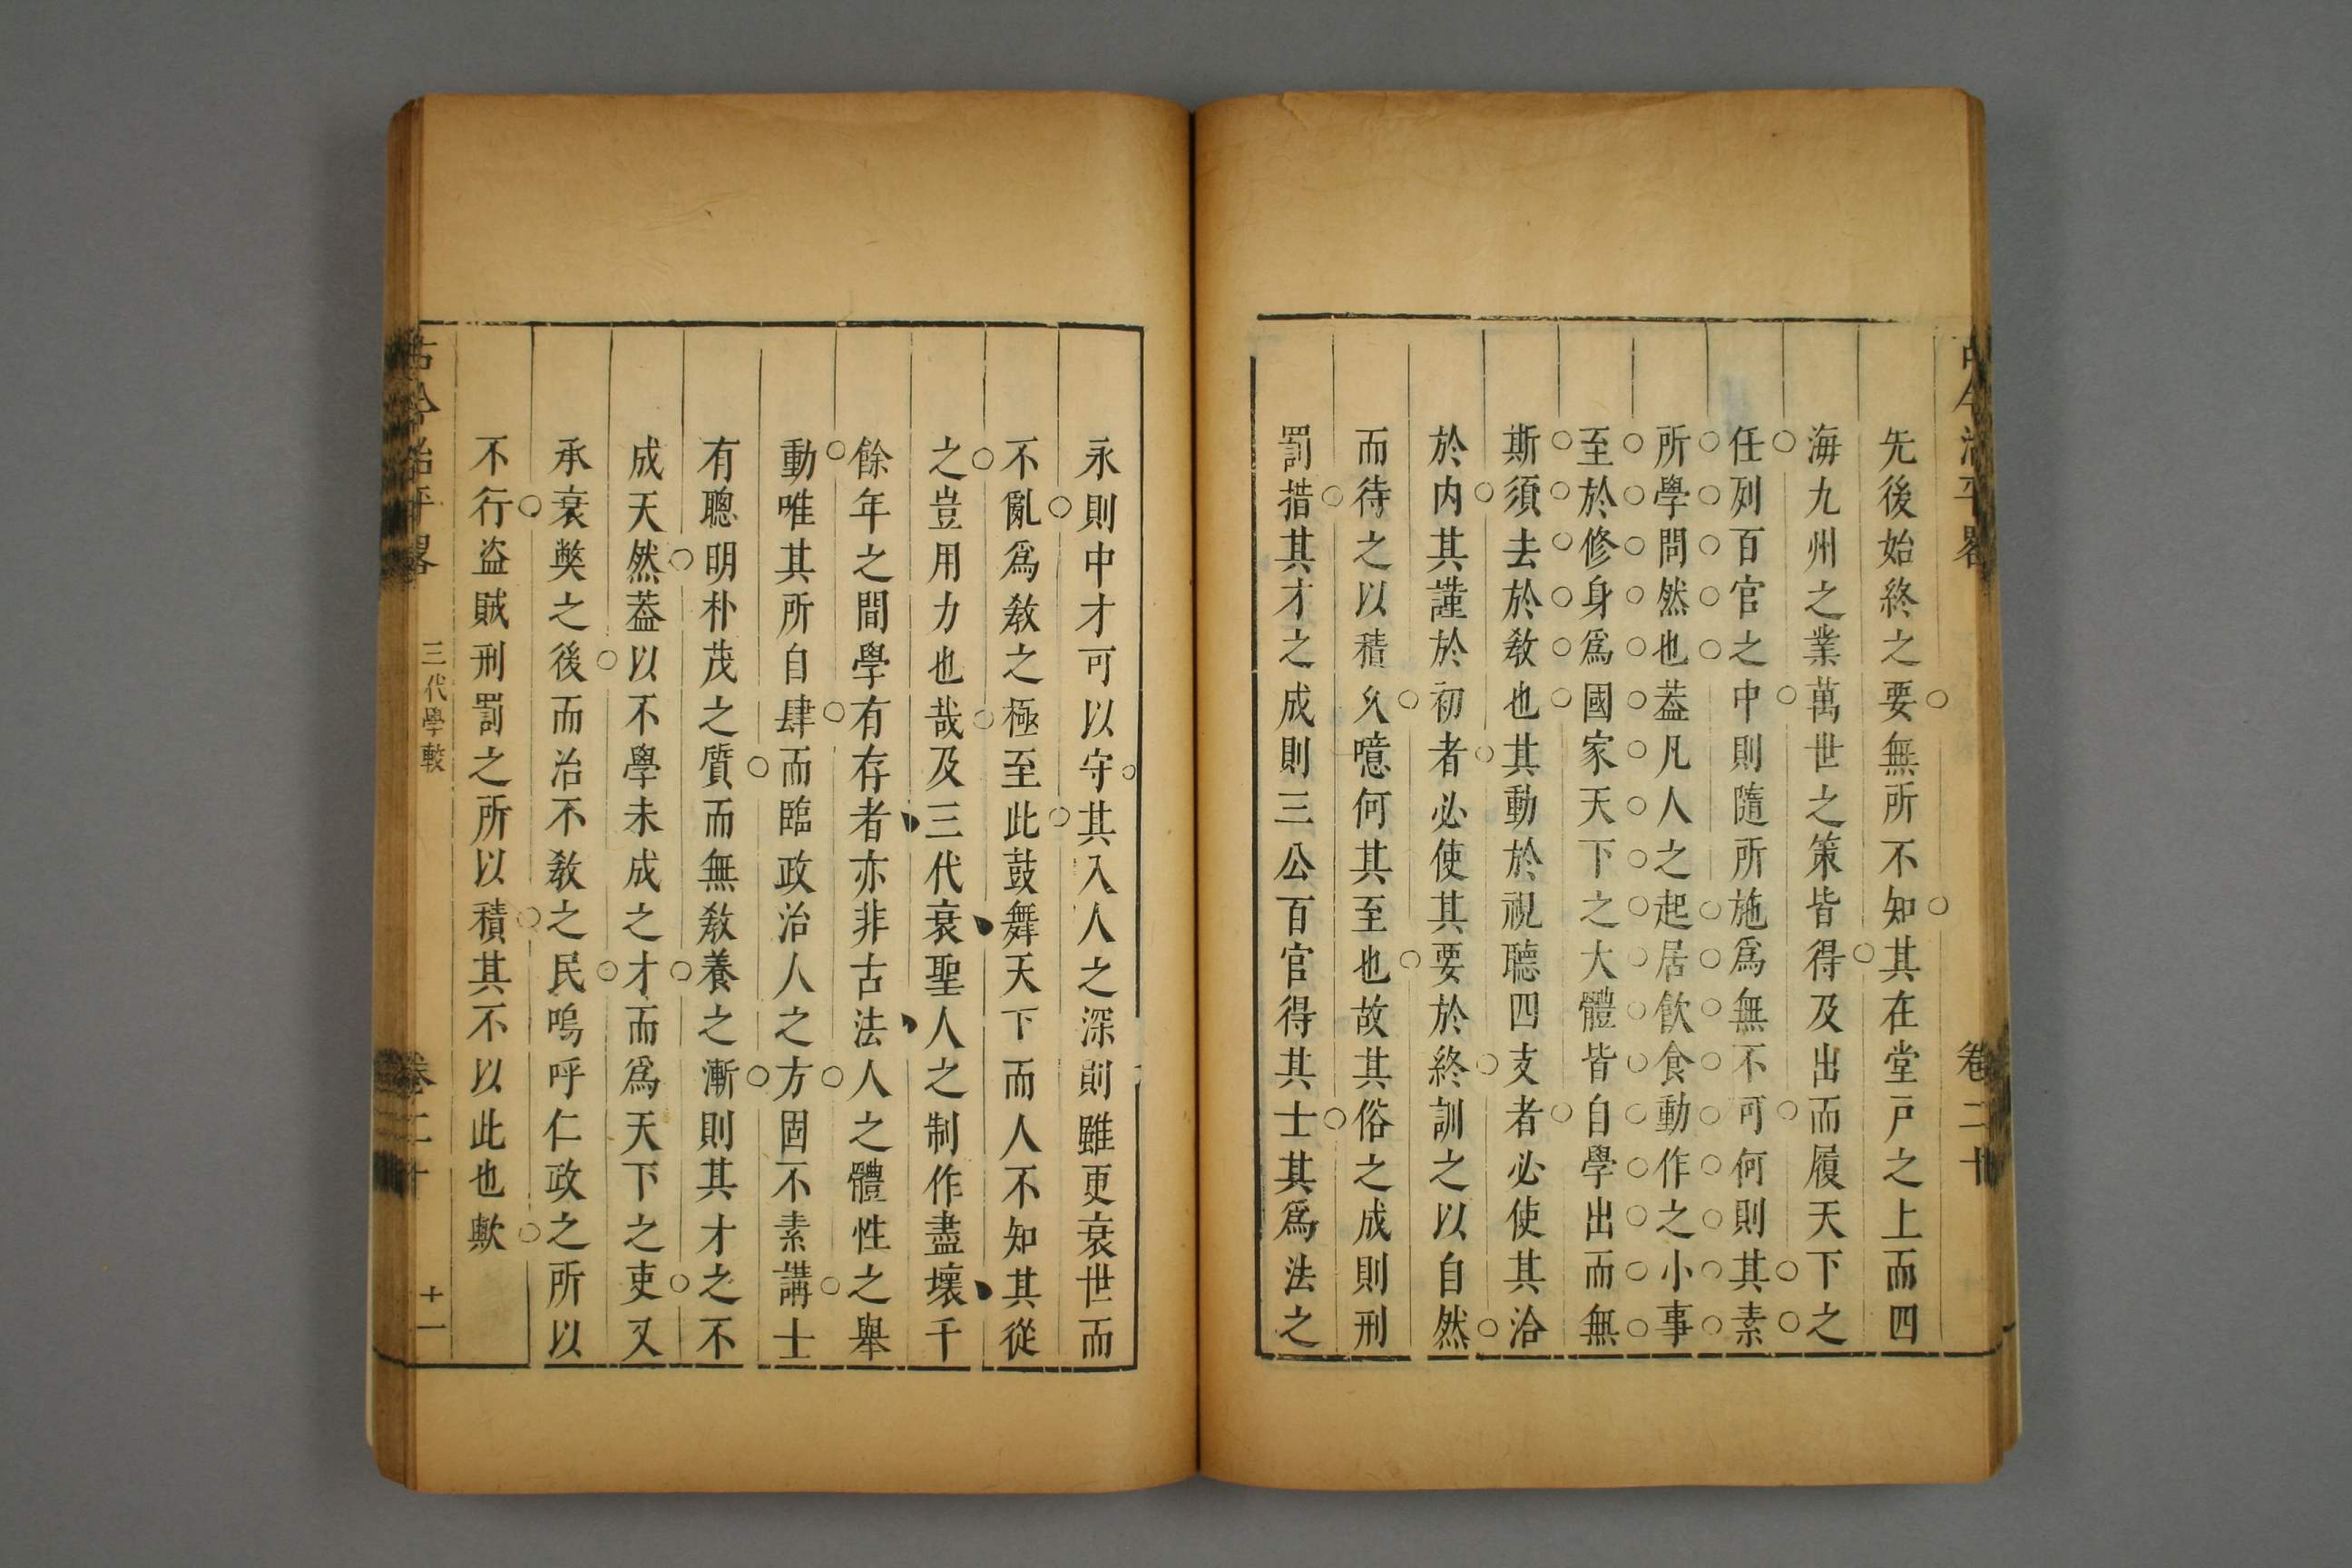 古今治平畧 卷二十
先後始終之要無所不知其在堂戸之上而四
海九州之業萬世之策皆得及出而履天下之
任列百官之中則隨所施爲無不可何則其素
所學問然也葢凡人之起居飲食動作之小事
至於修身爲國家天下之大體皆自學出而無
斯須去於敎也其動於視聽四支者必使其洽
於内其謹於初者必使其要於終訓之以自然
而待之以積乆噫何其至也故其俗之成則刑
罰措其才之成則三公百官得其士其爲法之
永則中才可以守其入人之深則雖更衰世而
不亂爲敎之極至此鼓舞天下而人不知其從
之豈用力也哉及三代衰聖人之制作盡壞千
餘年之間學有存者亦非古法人之體性之舉
動唯其所自肆而臨政治人之方固不素講士
有聰明朴茂之質而無敎養之漸則其才之不
成天然葢以不學未成之才而爲天下之吏又
承衰獘之後而治不敎之民嗚呼仁政之所以
不行盗賊刑罰之所以積其不以此也歟
古今治平畧 三代學較 卷二十 十一